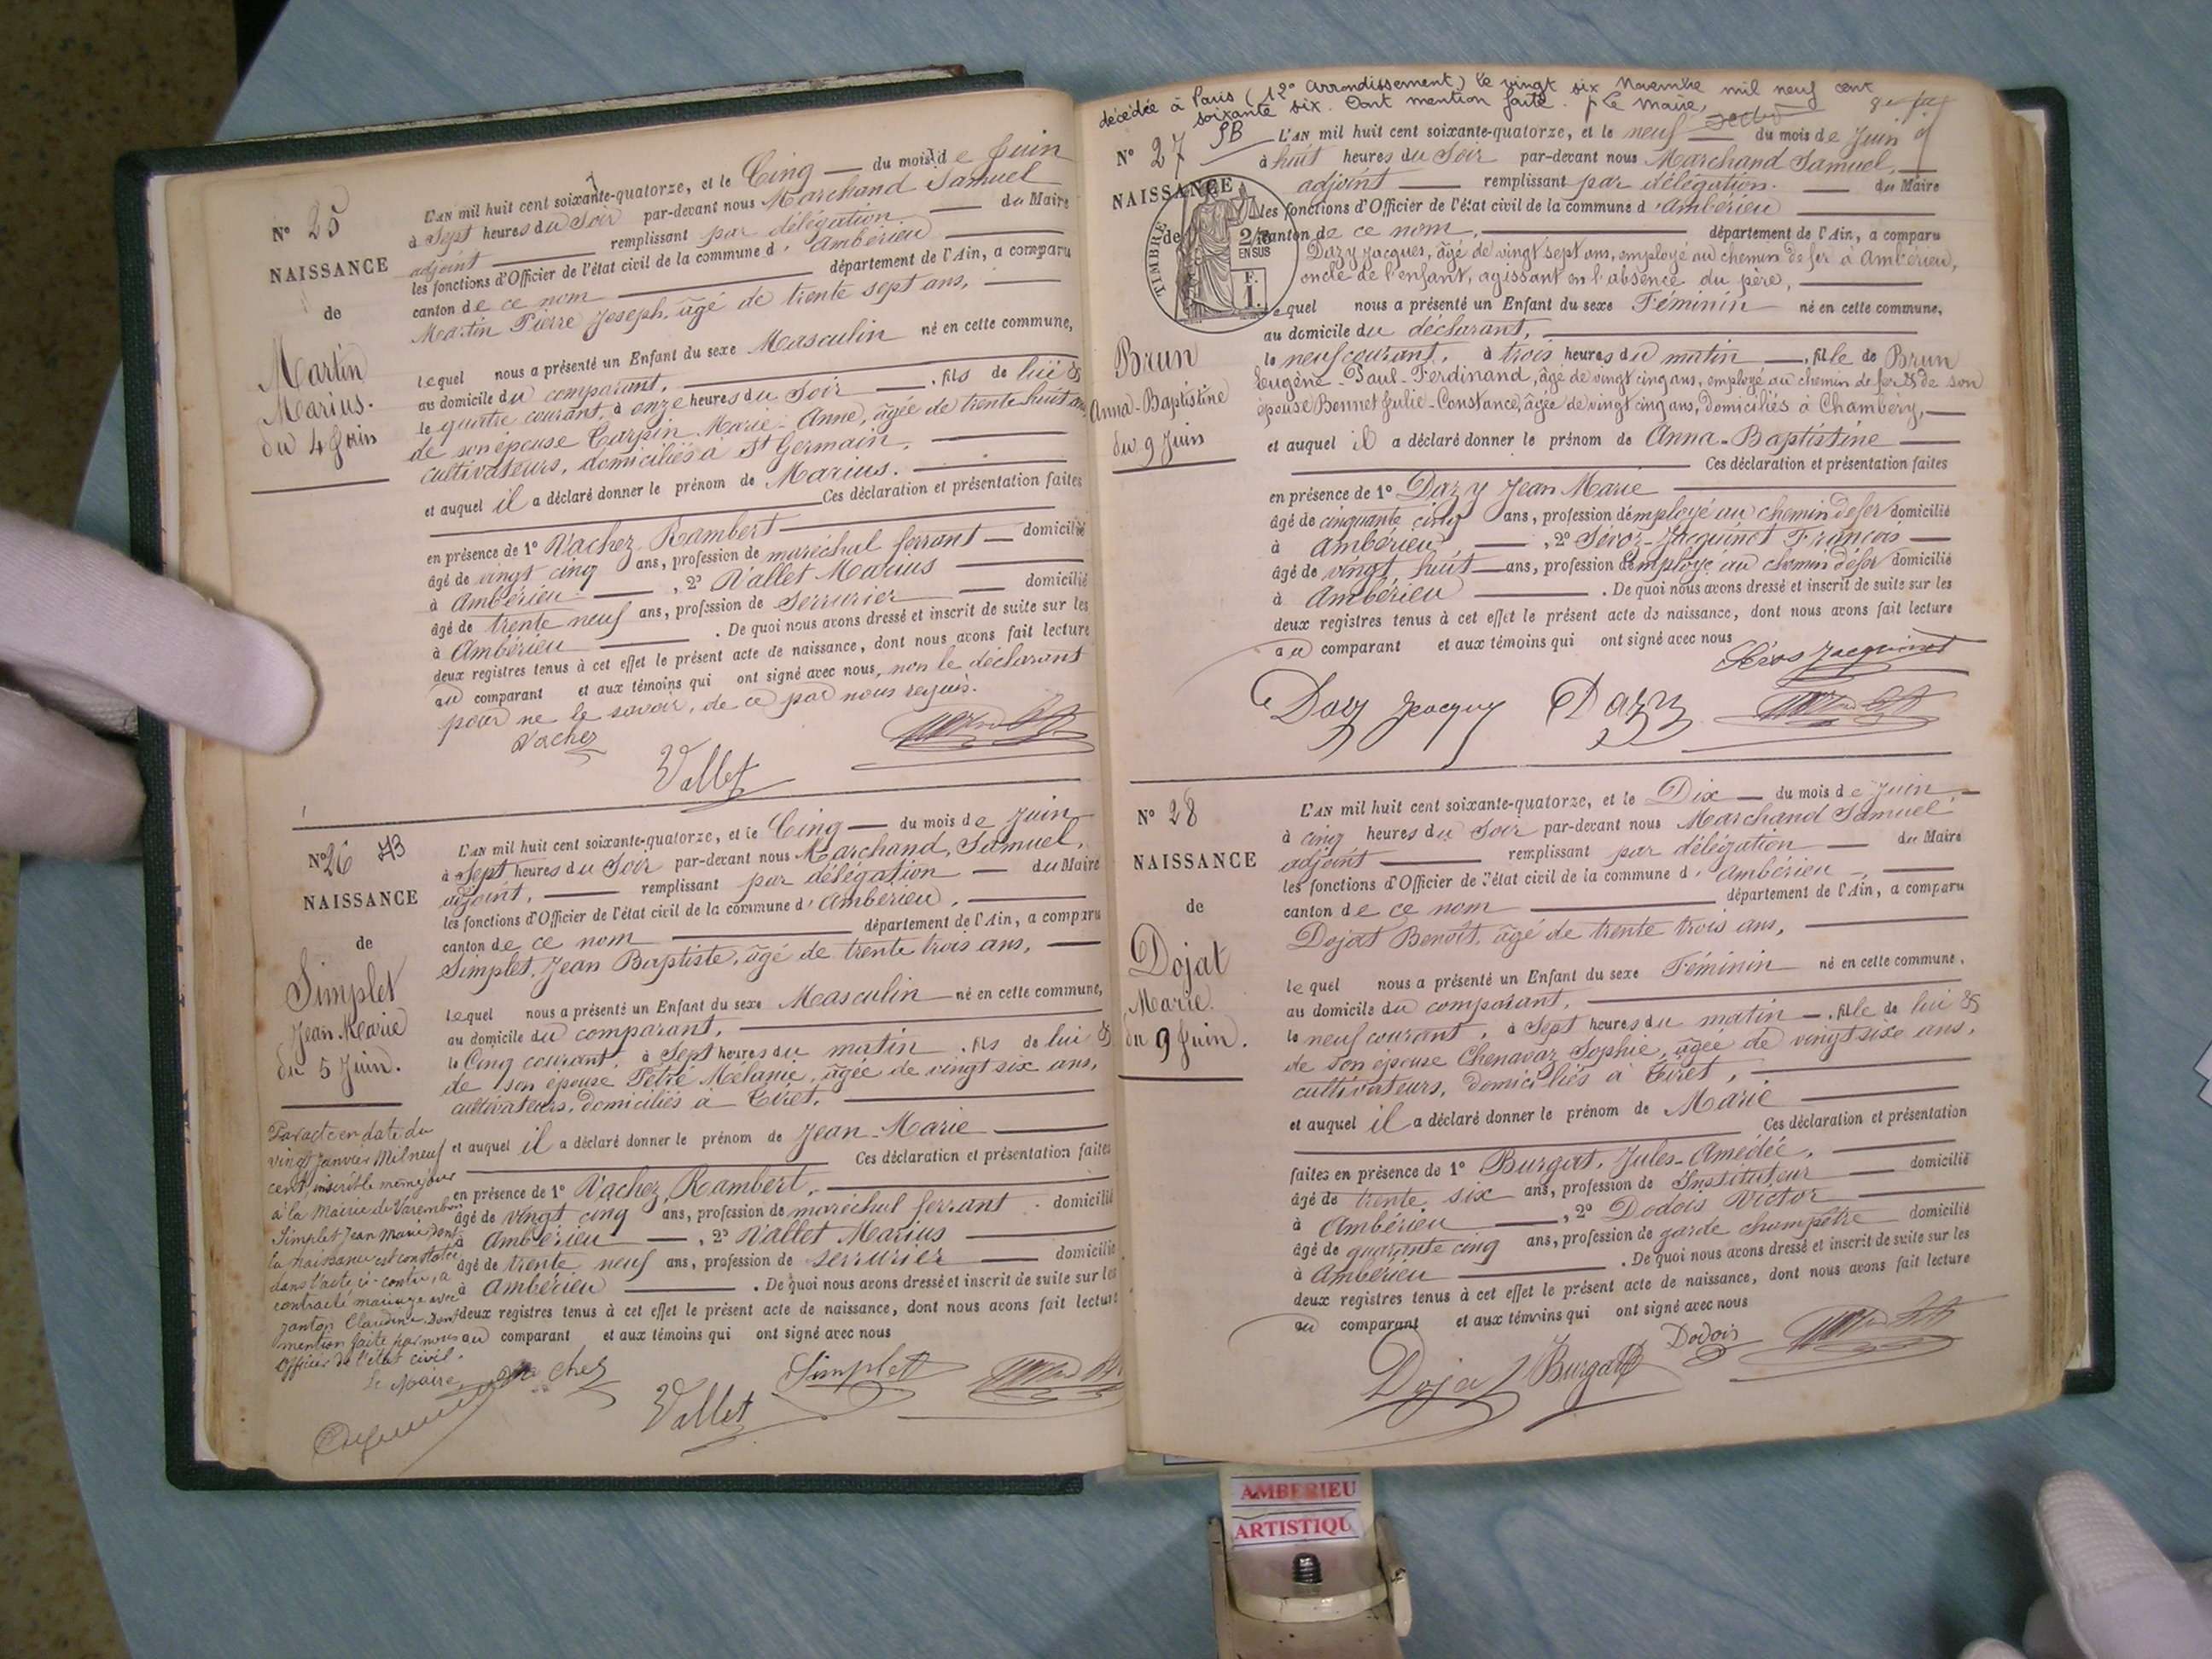 N° 25
NAISSANCE
de
Martin
Marius.
du 4 Juin
L'AN mil huit cent soixante-quatorze, et le Cinq du mois de Juin
à Sept heures du Soir par-devant nous Marchand Samuel
adjoint remplissant par délégation. du Maire
les fonctions d'Officier de l'état civil de la commune d'Ambérieu
canton de ce nom département de l'Ain, a comparu
Martin Pierre Joseph, âgé de trente sept ans,
lequel nous a présenté un Enfant du sexe Masculin né en cette commune,
au domicile du comparant,
le quatre courant, à onze heures du Soir, fils de lui &
de son épouse Carpin Marie-Anne, âgée de trente huit ans,
cultivateurs, domiciliés à St Germain,
et auquel il a déclaré donner le prénom de Marius.
Ces déclaration et présentation faites
en présence de 1° Vachez Rambert
âgé de vingt cinq ans, profession de maréchal ferrant domicilié
à Ambérieu, 2° Vallet Marius
âgé de trente neuf ans, profession de Serrurier domicilié
à Ambérieu. De quoi nous avons dressé et inscrit de suite sur les
deux registres tenus à cet effet le présent acte de naissance, dont nous avons fait lecture
au comparant et aux témoins qui ont signé avec nous, non le déclarant
pour ne le savoir, de ce par nous requis.
Vachez
Vallet
N° 26
NAISSANCE
de
Simplet
Jean Marie
du 5 Juin.
L'AN mil huit cent soixante-quatorze, et le Cinq du mois de Juin
à Sept heures du Soir par-devant nous Marchand, Samuel,
adjoint, remplissant par délégation du Maire
les fonctions d'Officier de l'état civil de la commune d'Ambérieu,
canton de ce nom département de l'Ain, a comparu
Simplet, Jean Baptiste, âgé de trente trois ans,
lequel nous a présenté un Enfant du sexe Masculin né en cette commune,
au domicile du comparant,
le Cinq courant, à Sept heures du matin, fils de lui &
de son épouse Fétré Mélanie, âgée de vingt six ans,
cultivateurs, domiciliés à Tiret,
et auquel il a déclaré donner le prénom de Jean-Marie
Ces déclaration et présentation faites
en présence de 1° Vachez, Rambert,
âgé de vingt cinq ans, profession de maréchal ferrant domicilié
à Ambérieu, 2° Vallet Marius
âgé de trente neuf ans, profession de serrurier domicilié
à Ambérieu. De quoi nous avons dressé et inscrit de suite sur les
deux registres tenus à cet effet le présent acte de naissance, dont nous avons fait lecture
au comparant et aux témoins qui ont signé avec nous
Par acte en date du
vingt Janvier Mil neuf
cent, inscrit le même jour
à la Mairie de Varambon
Simplet Jean Marie, dont
la naissance est constatée
dans l'acte ci-contre, a
contracté mariage avec
Janton Claudine. Dont
mention faite par nous
Officier de l'état civil.
Le Maire,
Vachez
Vallet
Simplet
décédée à Paris (12e arrondissement) le vingt six Novembre mil neuf cent
soixante six. Dont mention faite. p Le Maire,
N° 27
NAISSANCE
de
TIMBRE
2/10
EN SUS
F.
1.
Brun
Anna-Baptistine
du 9 Juin
L'AN mil huit cent soixante-quatorze, et le neuf du mois de Juin
à huit heures du Soir par-devant nous Marchand Samuel,
adjoint remplissant par délégation. du Maire
les fonctions d'Officier de l'état civil de la commune d'Ambérieu
canton de ce nom, département de l'Ain, a comparu
Dazy Jacques, âgé de vingt sept ans, employé au chemin de fer à Ambérieu,
oncle de l'enfant, agissant en l'absence du père,
lequel nous a présenté un Enfant du sexe Féminin né en cette commune,
au domicile du déclarant,
le neuf courant, à trois heures du matin, fille de Brun
Eugène-Paul-Ferdinand, âgé de vingt cinq ans, employé au chemin de fer & de son
épouse Bonnet Julie-Constance, âgée de vingt cinq ans, domiciliés à Chambéry,
et auquel il a déclaré donner le prénom de Anna-Baptistine
Ces déclaration et présentation faites
en présence de 1° Dazy Jean Marie
âgé de cinquante cinq ans, profession d'employé au chemin de fer domicilié
à Ambérieu, 2° Sévoz-Jacquinot François
âgé de vingt huit ans, profession d'employé au chemin de fer domicilié
à Ambérieu. De quoi nous avons dressé et inscrit de suite sur les
deux registres tenus à cet effet le présent acte de naissance, dont nous avons fait lecture
au comparant et aux témoins qui ont signé avec nous
Dazy Jacques Dazy
N° 28
NAISSANCE
de
Dojat
Marie.
du 9 Juin.
L'AN mil huit cent soixante-quatorze, et le Dix du mois de Juin
à cinq heures du Soir par-devant nous Marchand Samuel
adjoint remplissant par délégation du Maire
les fonctions d'Officier de l'état civil de la commune d'Ambérieu,
canton de ce nom département de l'Ain, a comparu
Dojat Benoît, âgé de trente trois ans,
lequel nous a présenté un Enfant du sexe Féminin né en cette commune,
au domicile du comparant,
le neuf courant, à Sept heures du matin, fille de lui &
de son épouse Chenavaz Sophie, âgée de vingt sixe ans,
cultivateurs, domiciliés à Tiret,
et auquel il a déclaré donner le prénom de Marie
Ces déclaration et présentation
faites en présence de 1° Burgat, Jules-Amédée,
âgé de trente six ans, profession de Instituteur domicilié
à Ambérieu, 2° Dodois Victor
âgé de quarante cinq ans, profession de garde champêtre domicilié
à Ambérieu. De quoi nous avons dressé et inscrit de suite sur les
deux registres tenus à cet effet le présent acte de naissance, dont nous avons fait lecture
au comparant et aux témoins qui ont signé avec nous
Dojat Burgat Dodois
AMBERIEU
ARTISTIQU